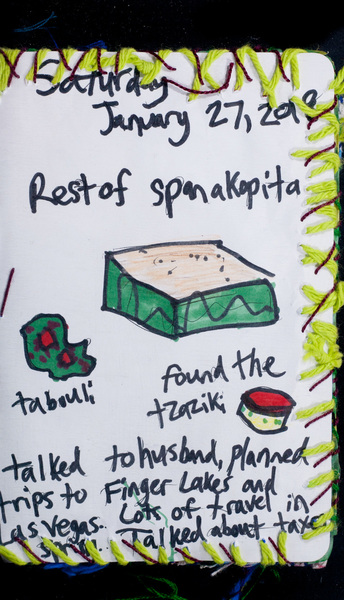 Saturday
January 27, 2018
Rest of spanakopita
tabouli
found the
tzaziki
talked to husband, planned
trips to Finger Lakes and
Las Vegas. Lots of travel in
spring. Talked about taxes.